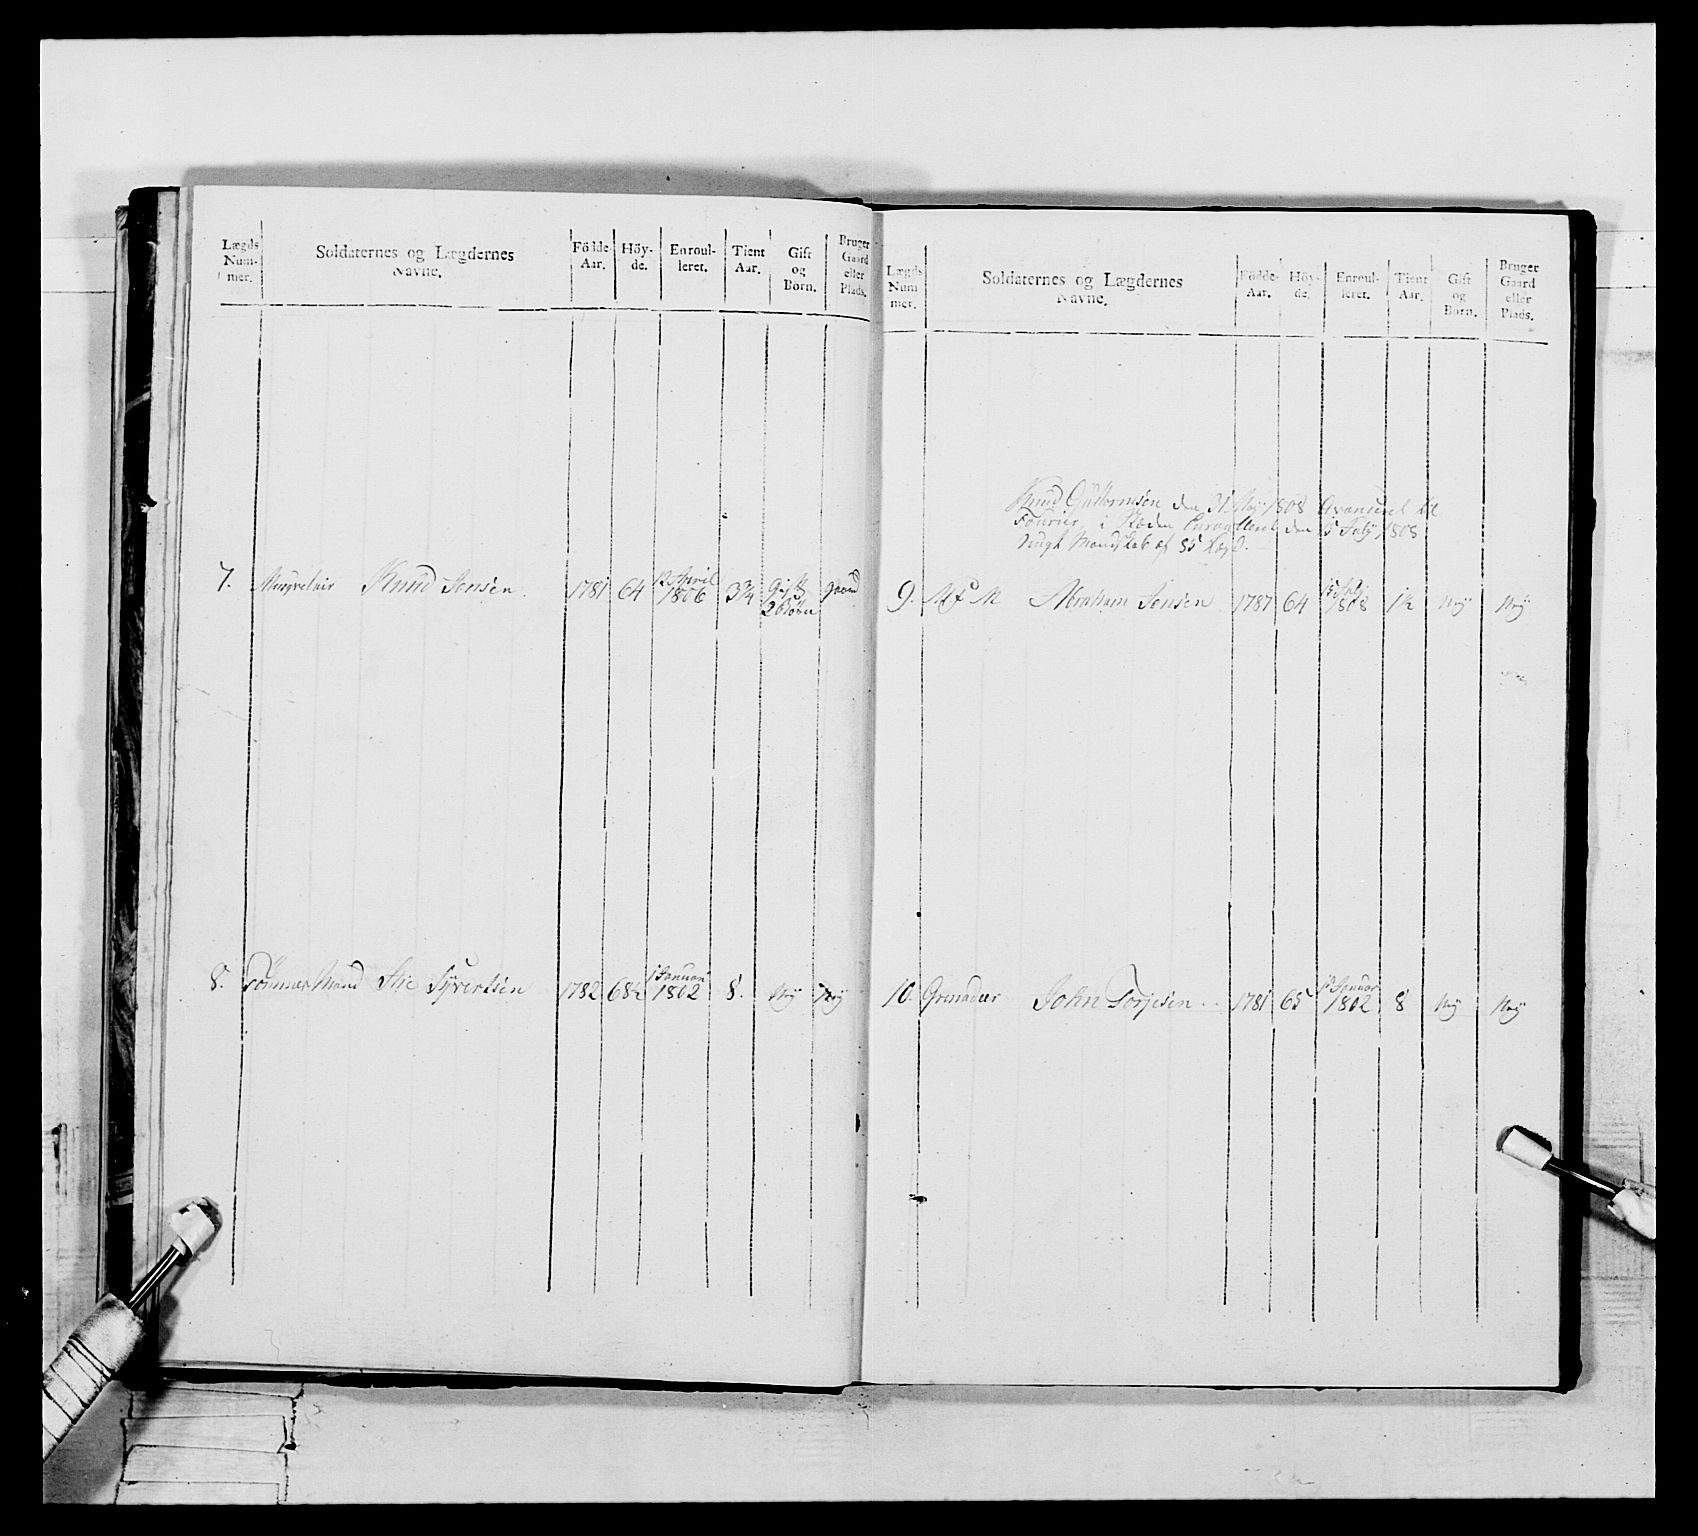 Lægds Num- mer. Soldaternes og Lægdernes Navne. Födde- Aar. Höy- de. Enroul- leret. Tient Aar. Gift og Börn. Bruger Gaard eller Plads.
7. Knud Jensen. 1781 64 12 April 1806 3¾ Gift 2 Börn Gaard
8. Tömmer Mand Syvertsen 1782 64½ 1 Januar 1802 8. Nÿ Nÿ
Lægds Num mer. Soldaternes og Lægdernes Navne. Födde- Aar. Höy- de. Enroul- leret. Tient Aar. Gift og Börn. Bruger Gaard eller Plads.
Knud Guttormsen den 31 May 1808 Avanceret til
Fourier, i Stæden Enroulleret den 15 July 1808
Ungt Mandskab af 85 Lægd.
9. Abraham Jensen 1787 64 15 July 1808 1½ Nÿ Nÿ
10. Grenadeer John Torjesen 1781 65 1 Januar 1802 8 Nÿ Nÿ